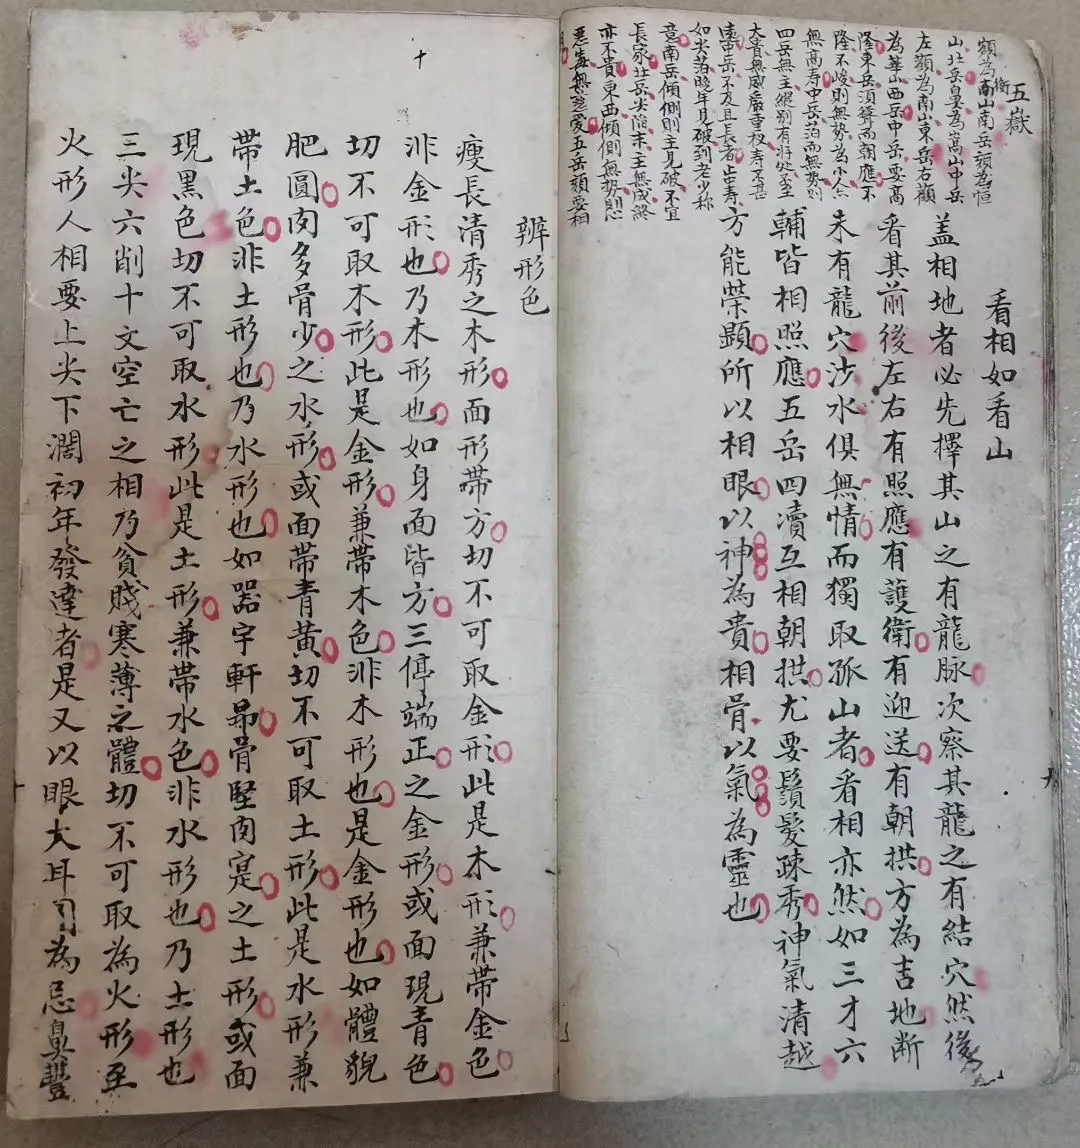 五嶽
額為衡山南岳頦為恒
山北岳鼻為嵩山中岳
左顴為南山東岳右顴
為華山西岳中岳要高
隆東岳須聳而朝應不
隆不峻則無勢為小人
無高壽中岳薄而無勢則
四岳無主縱別有好處不至
大貴無威嚴重權壽不甚
遠中岳不及且長者止中壽
如尖薄晚年見破到老少称
意南岳傾側則主見破不宜
長家北岳尖陷末主無成終
亦不貴東西傾側無勢則心
惡毒無慈愛五岳須要相
看相如看山
盖相地者必先擇其山之有龍脉次察其龍之有結穴然後
看其前後左右有照應有護衛有迎送有朝拱方為吉地斷
未有龍穴沙水俱無情而獨取孤山者看相亦然如三才六
輔皆相照應五岳四瀆互相朝拱尤要鬚髮疎秀神氣清越
方能榮顯所以相眼以神為貴相骨以氣為靈也
九
十
辨形色
瘦長清秀之木形面形帶方切不可取金形此是木形兼帶金色
非金形也乃木形也如身面皆方三停端正之金形或面現青色
切不可取木形此是金形兼帶木色非木形也是金形也如體貌
肥圓肉多骨少之水形或面帶青黃切不可取土形此是水形兼
帶土色非土形也乃水形也如器宇軒昂骨堅肉寔之土形或面
現黑色切不可取水形此是土形兼帶水色非水形也乃土形也
三尖六削十文空亡之相乃貧賤寒薄之體切不可取為火形至
火形人相要上尖下濶初年發達者是又以眼大耳司為忌鼻豐